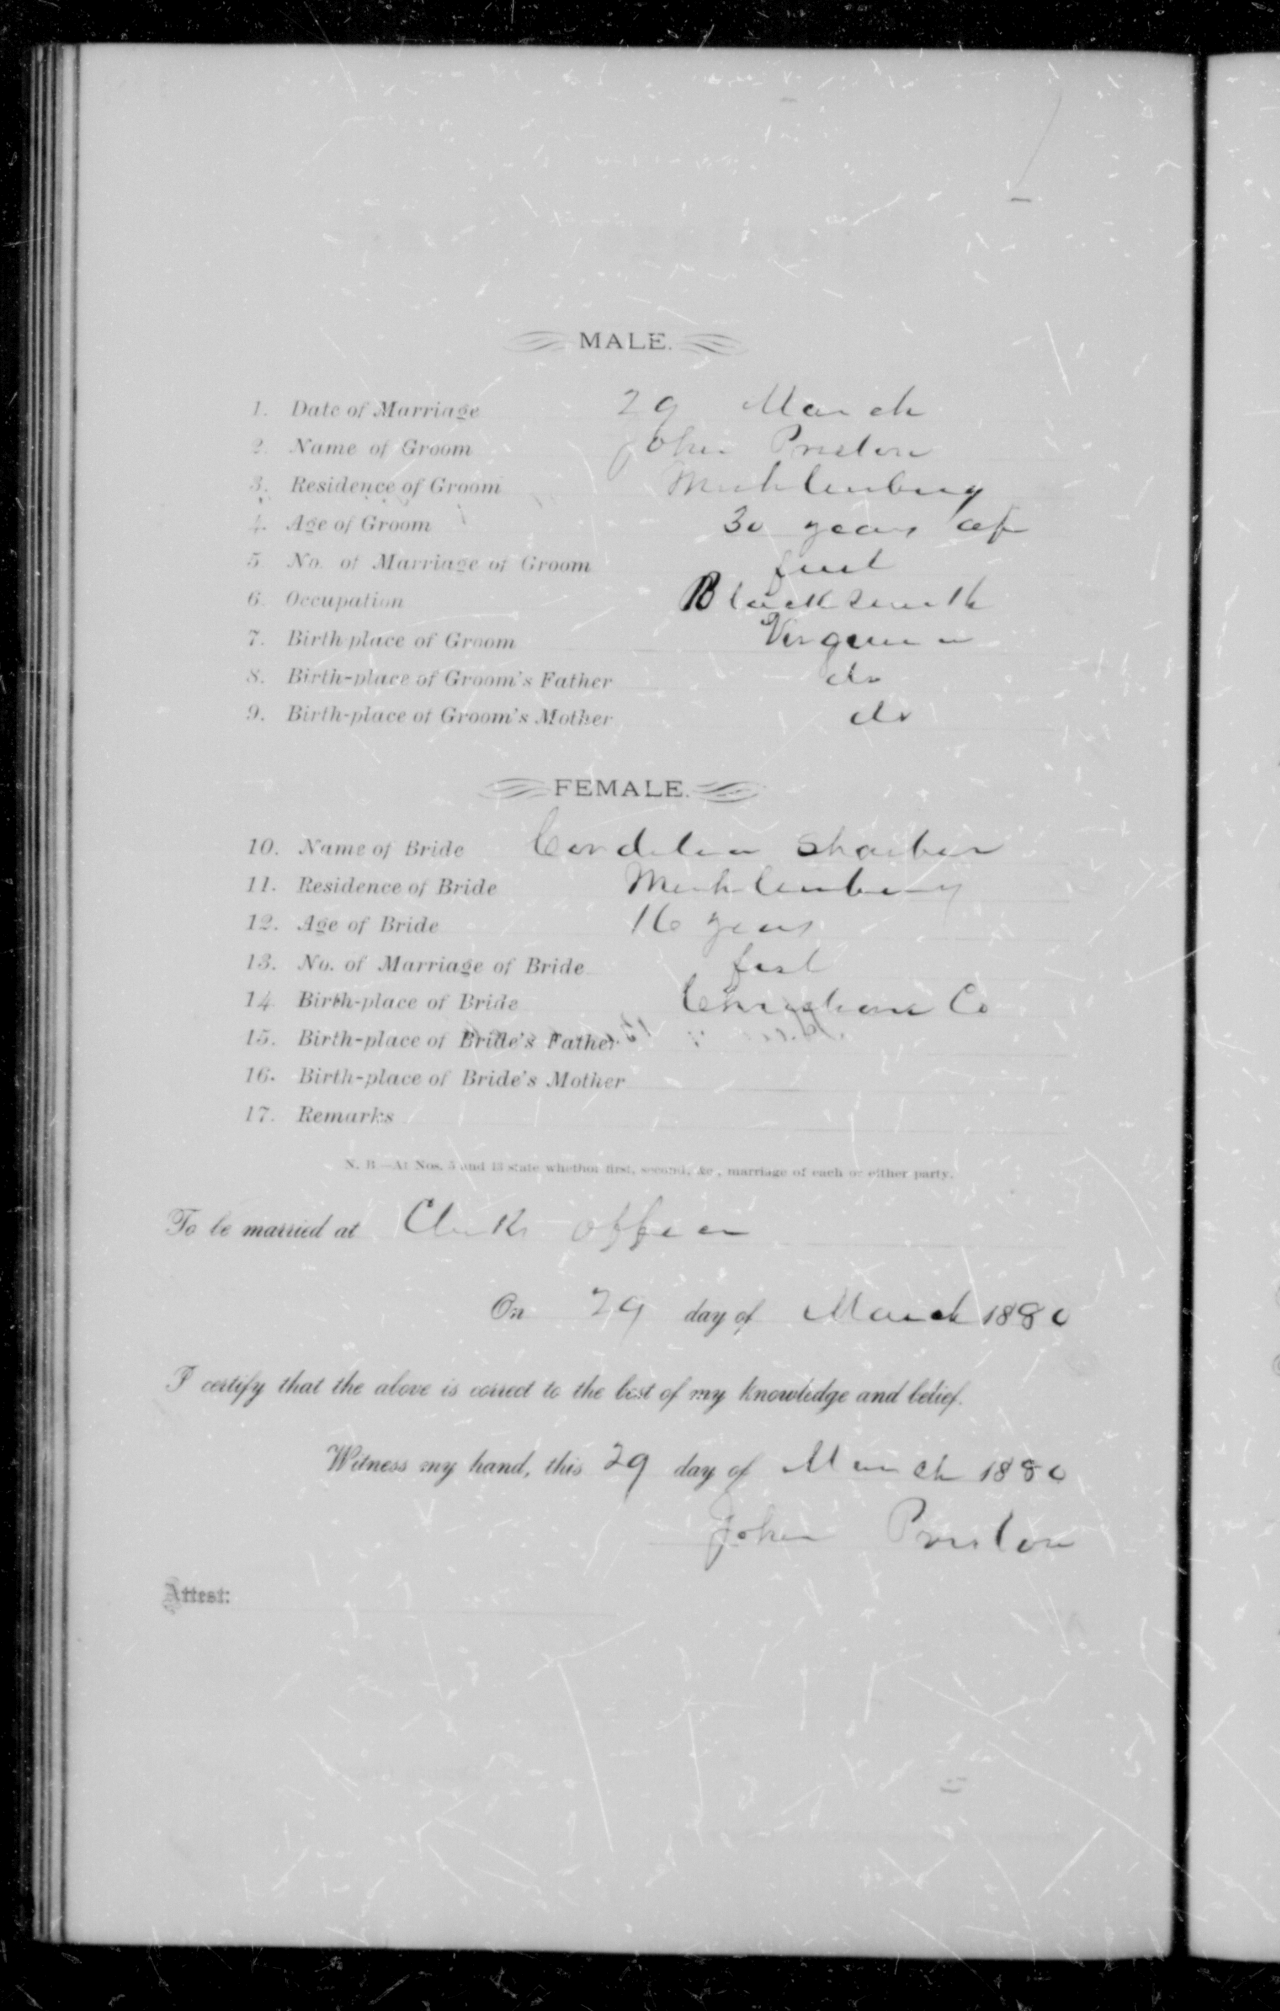 MALE.
1. Date of Marriage 29 March
2. Name of Groom John Preston
3. Residence of Groom Muhlenberg
4. Age of Groom 30 years
5. No. of Marriage of Groom first
6. Occupation Blacksmith
7. Birth-place of Groom Virginia
8. Birth-place of Groom's Father do
9. Birth-place of Groom's Mother do
FEMALE.
10. Name of Bride Cordelia
11. Residence of Bride Muhlenberg
12. Age of Bride 16 years
13. No. of Marriage of Bride first
14. Birth-place of Bride Christian Co
15. Birth-place of Bride's Father
16. Birth-place of Bride's Mother
17. Remarks
N. B.—At Nos. 5 and 13 state whether first, second, &c., marriage of each or either party.
To be married at Clerks office
On 29 day of March 1880
I certify that the above is correct to the best of my knowledge and belief.
Witness my hand, this 29 day of March 1880
John Preston
Attest: